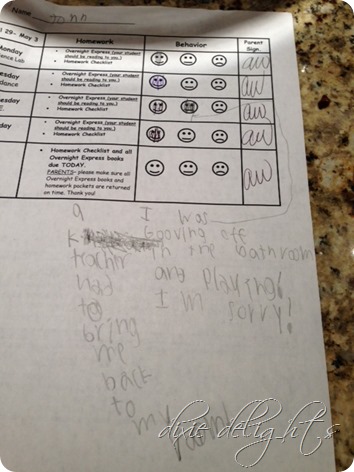 Name John
29 - May 3
Homework
Behavior
Parent Sign.
Monday
ence Lab
• Overnight Express (your student should be reading to you.)
• Homework Checklist
aw
esday
dance
• Overnight Express (your student should be reading to you.)
• Homework Checklist
aw
esday
• Overnight Express (your student should be reading to you.)
• Homework Checklist
aw
day
• Overnight Express (your student should be reading to you.)
• Homework Checklist
aw
• Homework Checklist and all Overnight Express books due TODAY.
PARENTS- please make sure all Overnight Express books and homework pockets are returned on time. Thank you!
aw
a
teacher
had
to
bring
me
back
to
my
I was
gooving off
in the bathroom
and playing!
I'm sorry!
dixie delights